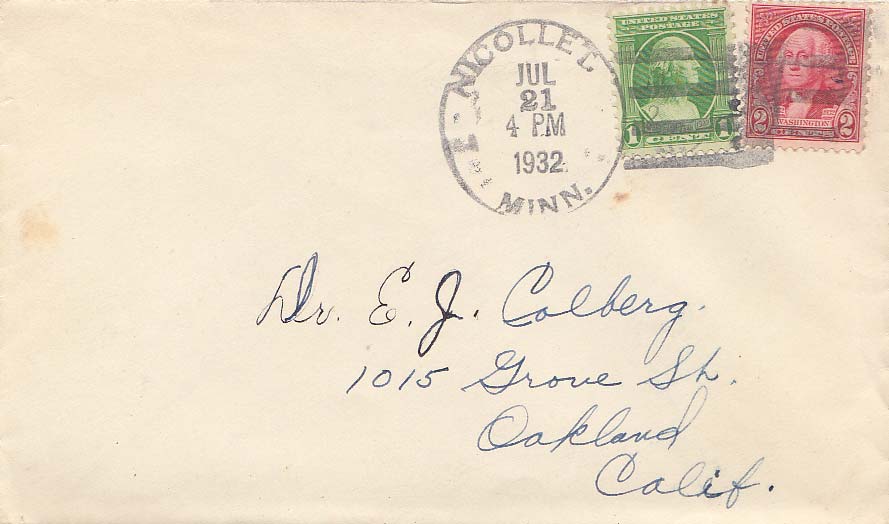 NICOLLET
JUL
21
4 PM
1932
MINN.
UNITED STATES
POSTAGE
1 CENT 1
UNITED STATES POSTAGE
2 WASHINGTON 2
CENTS
Dr. E. J. Colberg.
1015 Grove St.
Oakland
Calif.